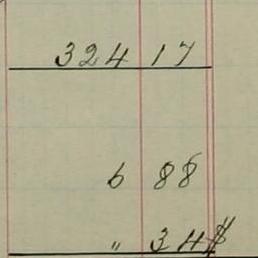 324 17
6 88
" 34